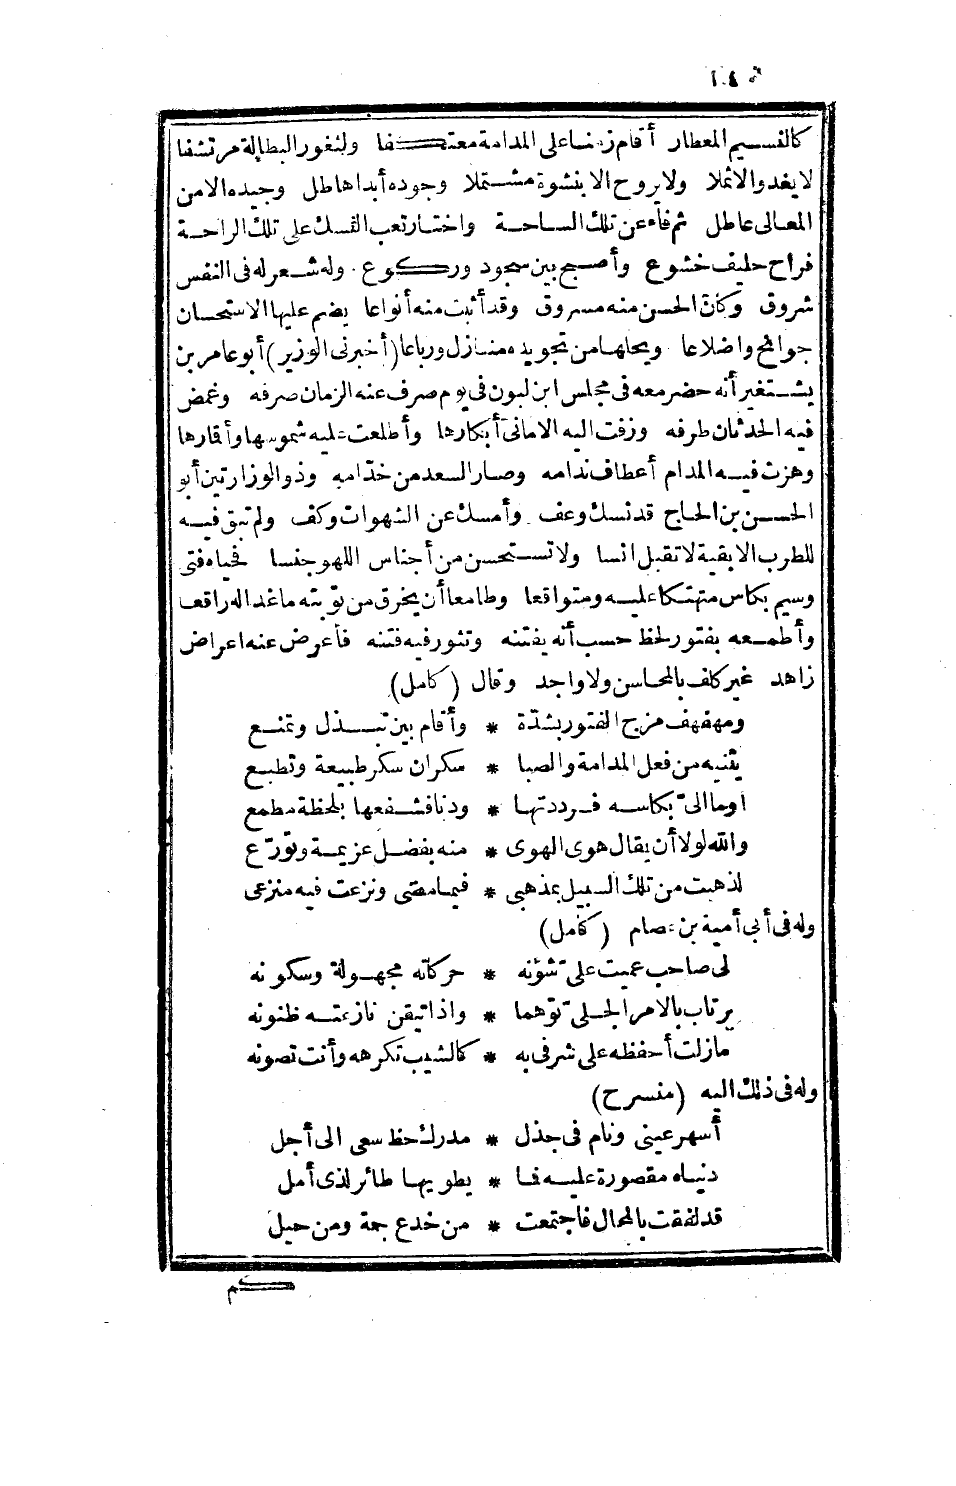 ١٠٤
كالنسيم المعطار أقام زمنا على المدامة معتكفا ولثغور البطالة مرتشفا
لا يغدو الا ثملا ولا يروح الا بنشوة مشتملا وجوده أبدا هاطل وجيده الا من
المعالى عاطل ثم فاء عن تلك الساحة واختار تعب النسك على تلك الراحة
فراح حليف خشوع وأصبح بين سجود وركوع وله شعر له فى النفس
شروق وكانّ الحسن منه مسروق وقد أثبت منه أنواعا يضم عليها الاستحسان
جوانح واضلاعا ويحلها من تجويده منازل ورباعا (أخبرنى الوزير) أبو عامر بن
يشتغير أنه حضر معه فى مجلس ابن لبون فى يوم صرف عنه الزمان صرفه وغمض
فيه الحدثان طرفه وزفت اليه الامانى أبكارها وأطلعت عليه شموسها وأقمارها
وهزت فيه المدام أعطاف ندامه وصار السعد من خدّامه وذو الوزارتين أبو
الحسن بن الحاج قد نسك وعف وأمسك عن الشهوات وكف ولم تبق فيه
للطرب الا بقية لا تقبل انسا ولا تستحسن من أجناس اللهو جنسا فحياه فتى
وسيم بكاس متهتكا عليه ومتواقعا وطامعا أن يخرق من توبته ما غدا له راقعا
وأطمعه بفتور لحظ حسب أنه يفتنه وتثور فيه فتنه فأعرض عنه اعراض
زاهد غير كلف بالمحاسن ولا واجد وقال (كامل)
ومهفهف مزج الفتور بشدّة * وأقام بين تبذل وتمنع
يثنيه من فعل المدامة والصبا * سكران سكر طبيعة وتطبع
اوما الىّ بكاسه فرددتها * ودنا فشفعها بلحظة مطمع
والله لولا أن يقال هوى الهوى * منه بفضل عزيمة وتورّع
لذهبت من تلك السبيل بمذهبى * فيما مضى ونزعت فيه منزعى
وله فى أبى أمية بن عصام (كامل)
لى صاحب عميت علىّ شؤنه * حركاته مجهولة وسكونه
يرتاب بالامر الجلىّ توهما * واذا تيقن نازعته ظنونه
ما زلت أحفظه على شرفى به * كالشيب تكرهه وأنت تصونه
وله فى ذلك اليه (منسرح)
أسهر عينى ونام فى جذل * مدرك حظ سعى الى أجل
دنياه مقصورة عليه فما * يطوبها طائر لذى أمل
قد لفقت بالمحال فاجتمعت * من خدع جمة ومن حيل
كم